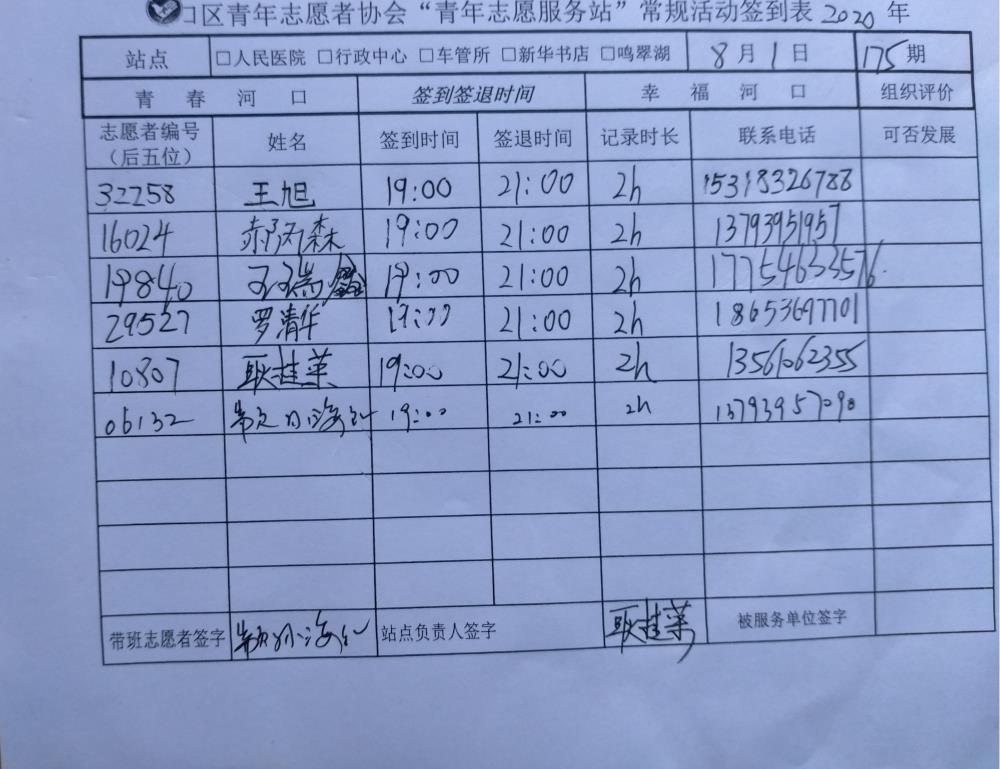 口区青年志愿者协会“青年志愿服务站”常规活动签到表 2020 年
站点 □人民医院 □行政中心 □车管所 □新华书店 □鸣翠湖 8月1日 175期
青春河口 签到签退时间 幸福河口 组织评价
志愿者编号（后五位） 姓名 签到时间 签退时间 记录时长 联系电话 可否发展
32258 王旭 19:00 21:00 2h 15318326788
16024 郝丙森 19:00 21:00 2h 13793951957
19840 19:00 21:00 2h 17754633576
29527 罗清华 19:00 21:00 2h 18653697701
10807 耿桂英 19:00 21:00 2h 1356062355
06132 19:00 21:00 2h 13793957090
带班志愿者签字 站点负责人签字 耿桂英 被服务单位签字